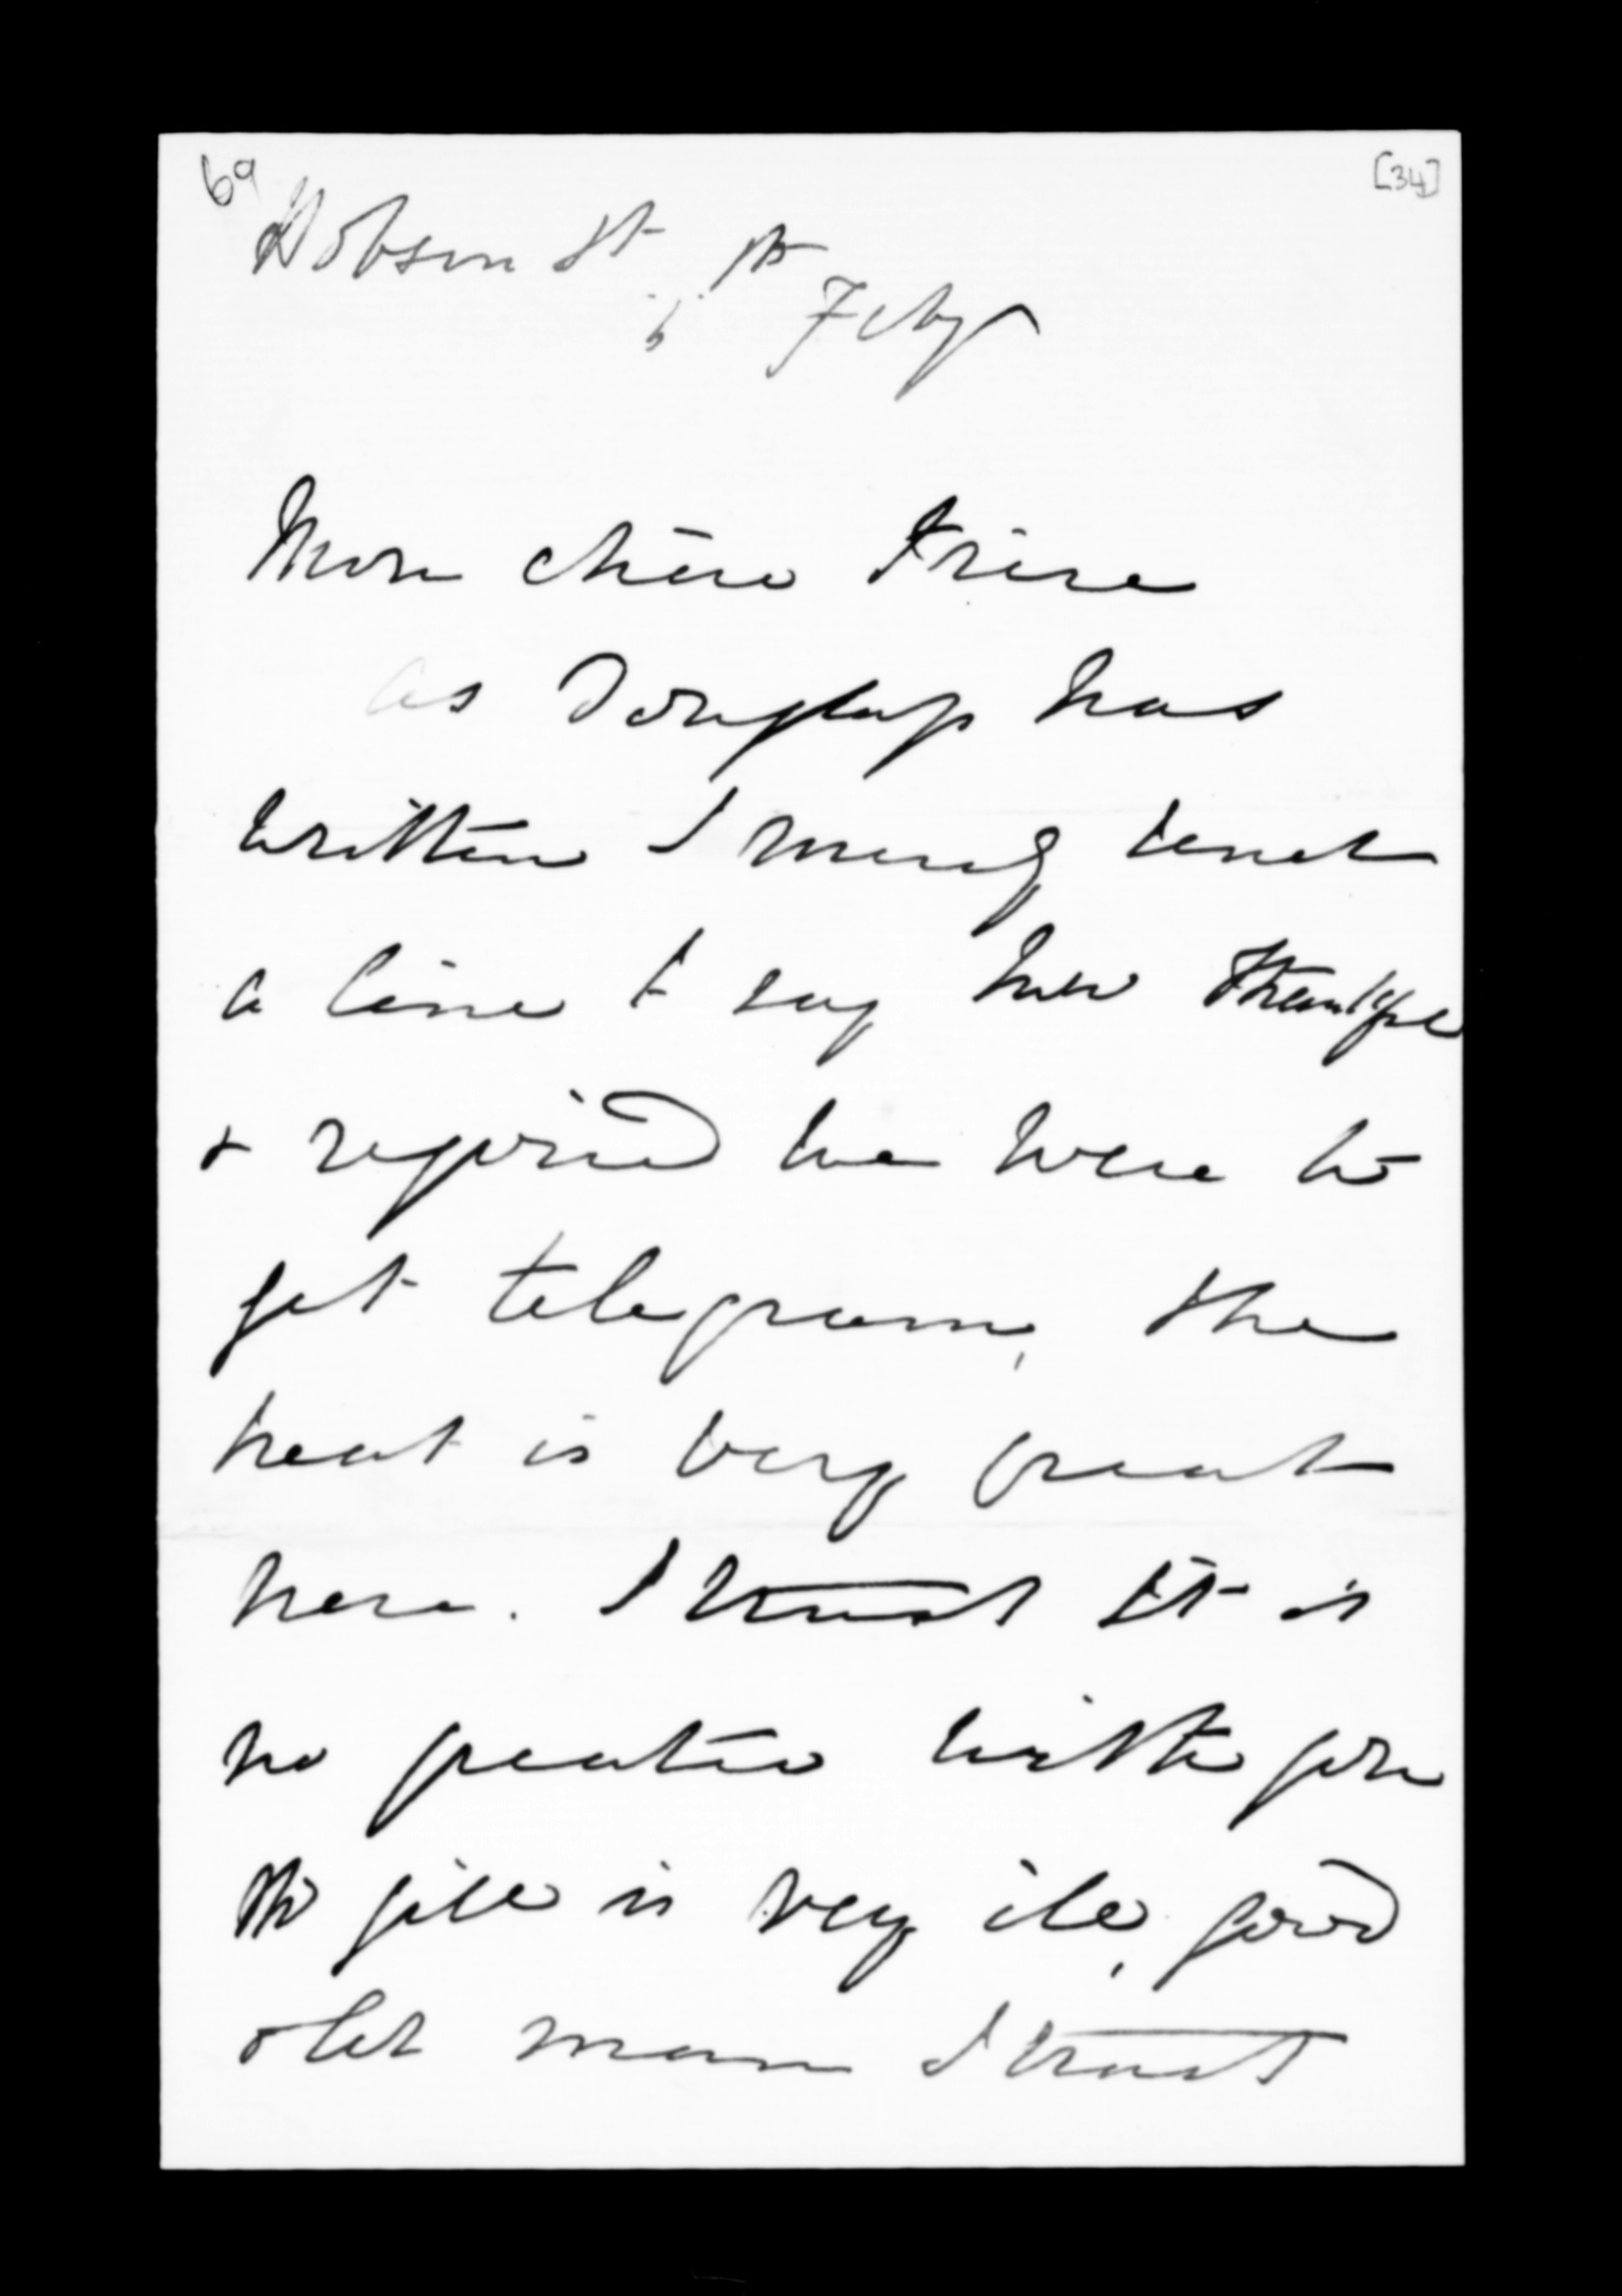 69
[34]
Hobson St
6 Feby
Mon chère Frère
as Douglas has
written I merely send
a line to say how thankful
& rejoiced we were to
get telegram, the
heat is very great
here. I trust it is
no greater with you
McGill is very ill, good
old man I trust